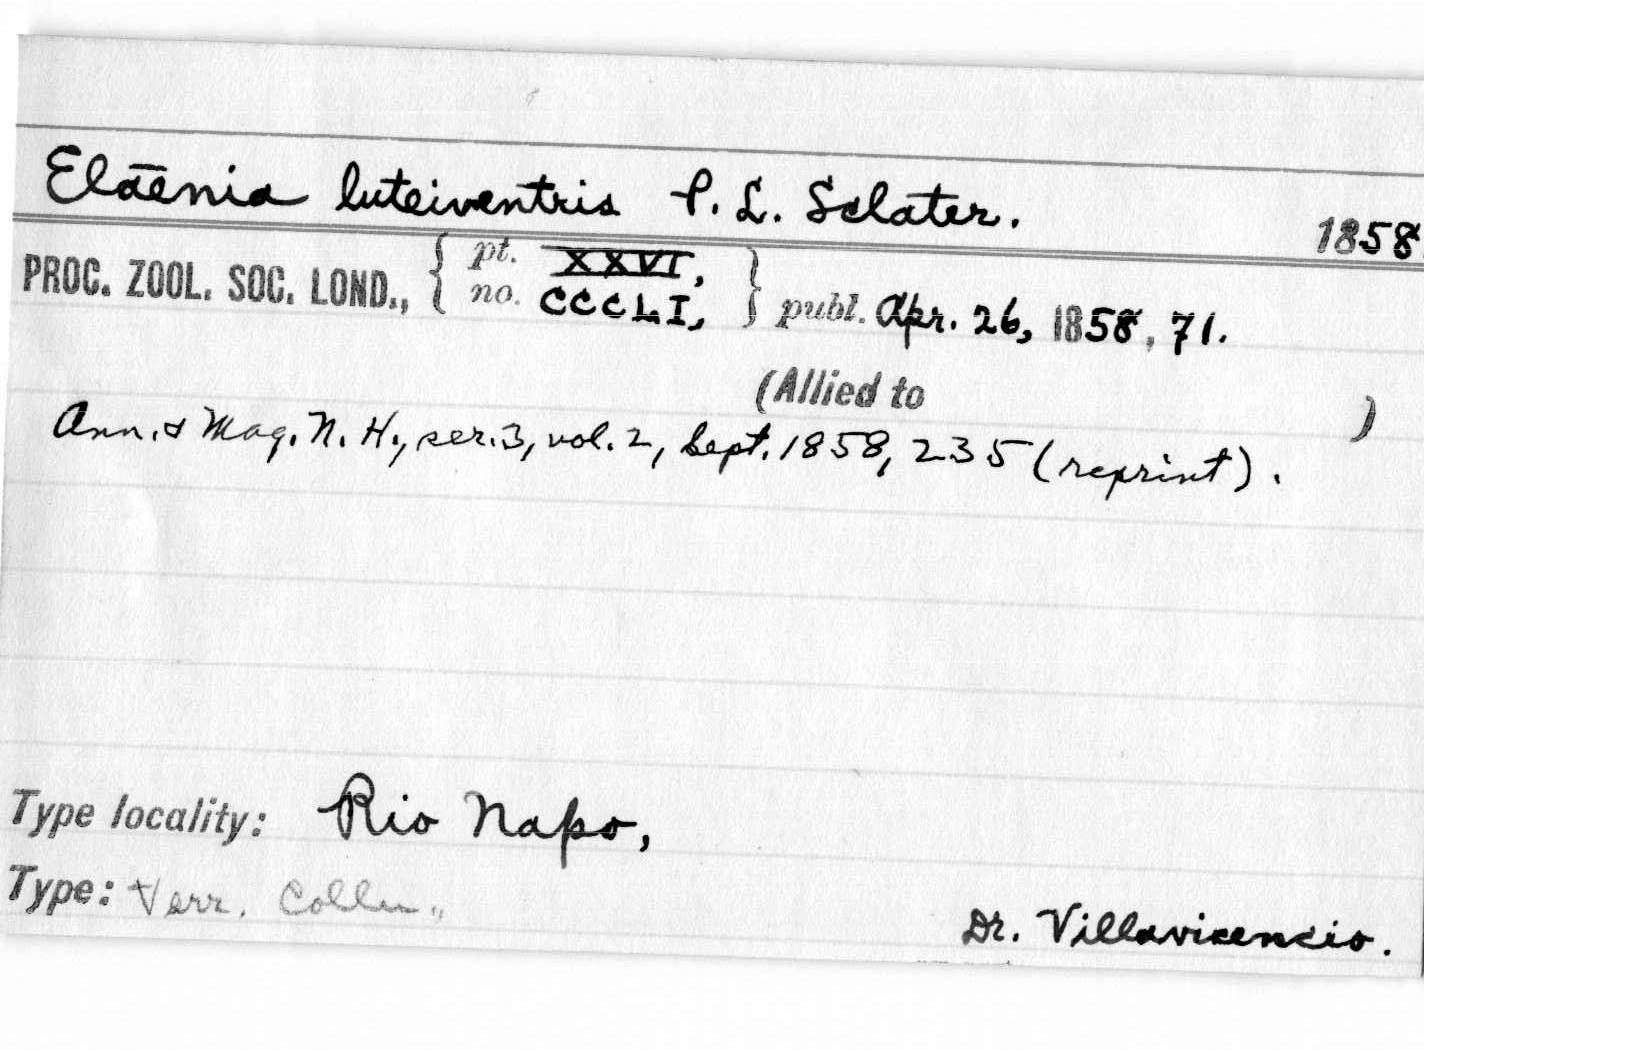 Elāenia luteiventris P. L. Sclater. 1858
PROC. ZOOL. SOC. LOND., { pt. XXVI, no. CCCLI, } publ. Apr. 26, 1858, 71.
(Allied to )
Ann. & Mag. N. H., ser. 3, vol. 2, Sept. 1858, 235 (reprint).
Type locality: Rio Napo,
Type: Verr. Colln.
Dr. Villavicencio.